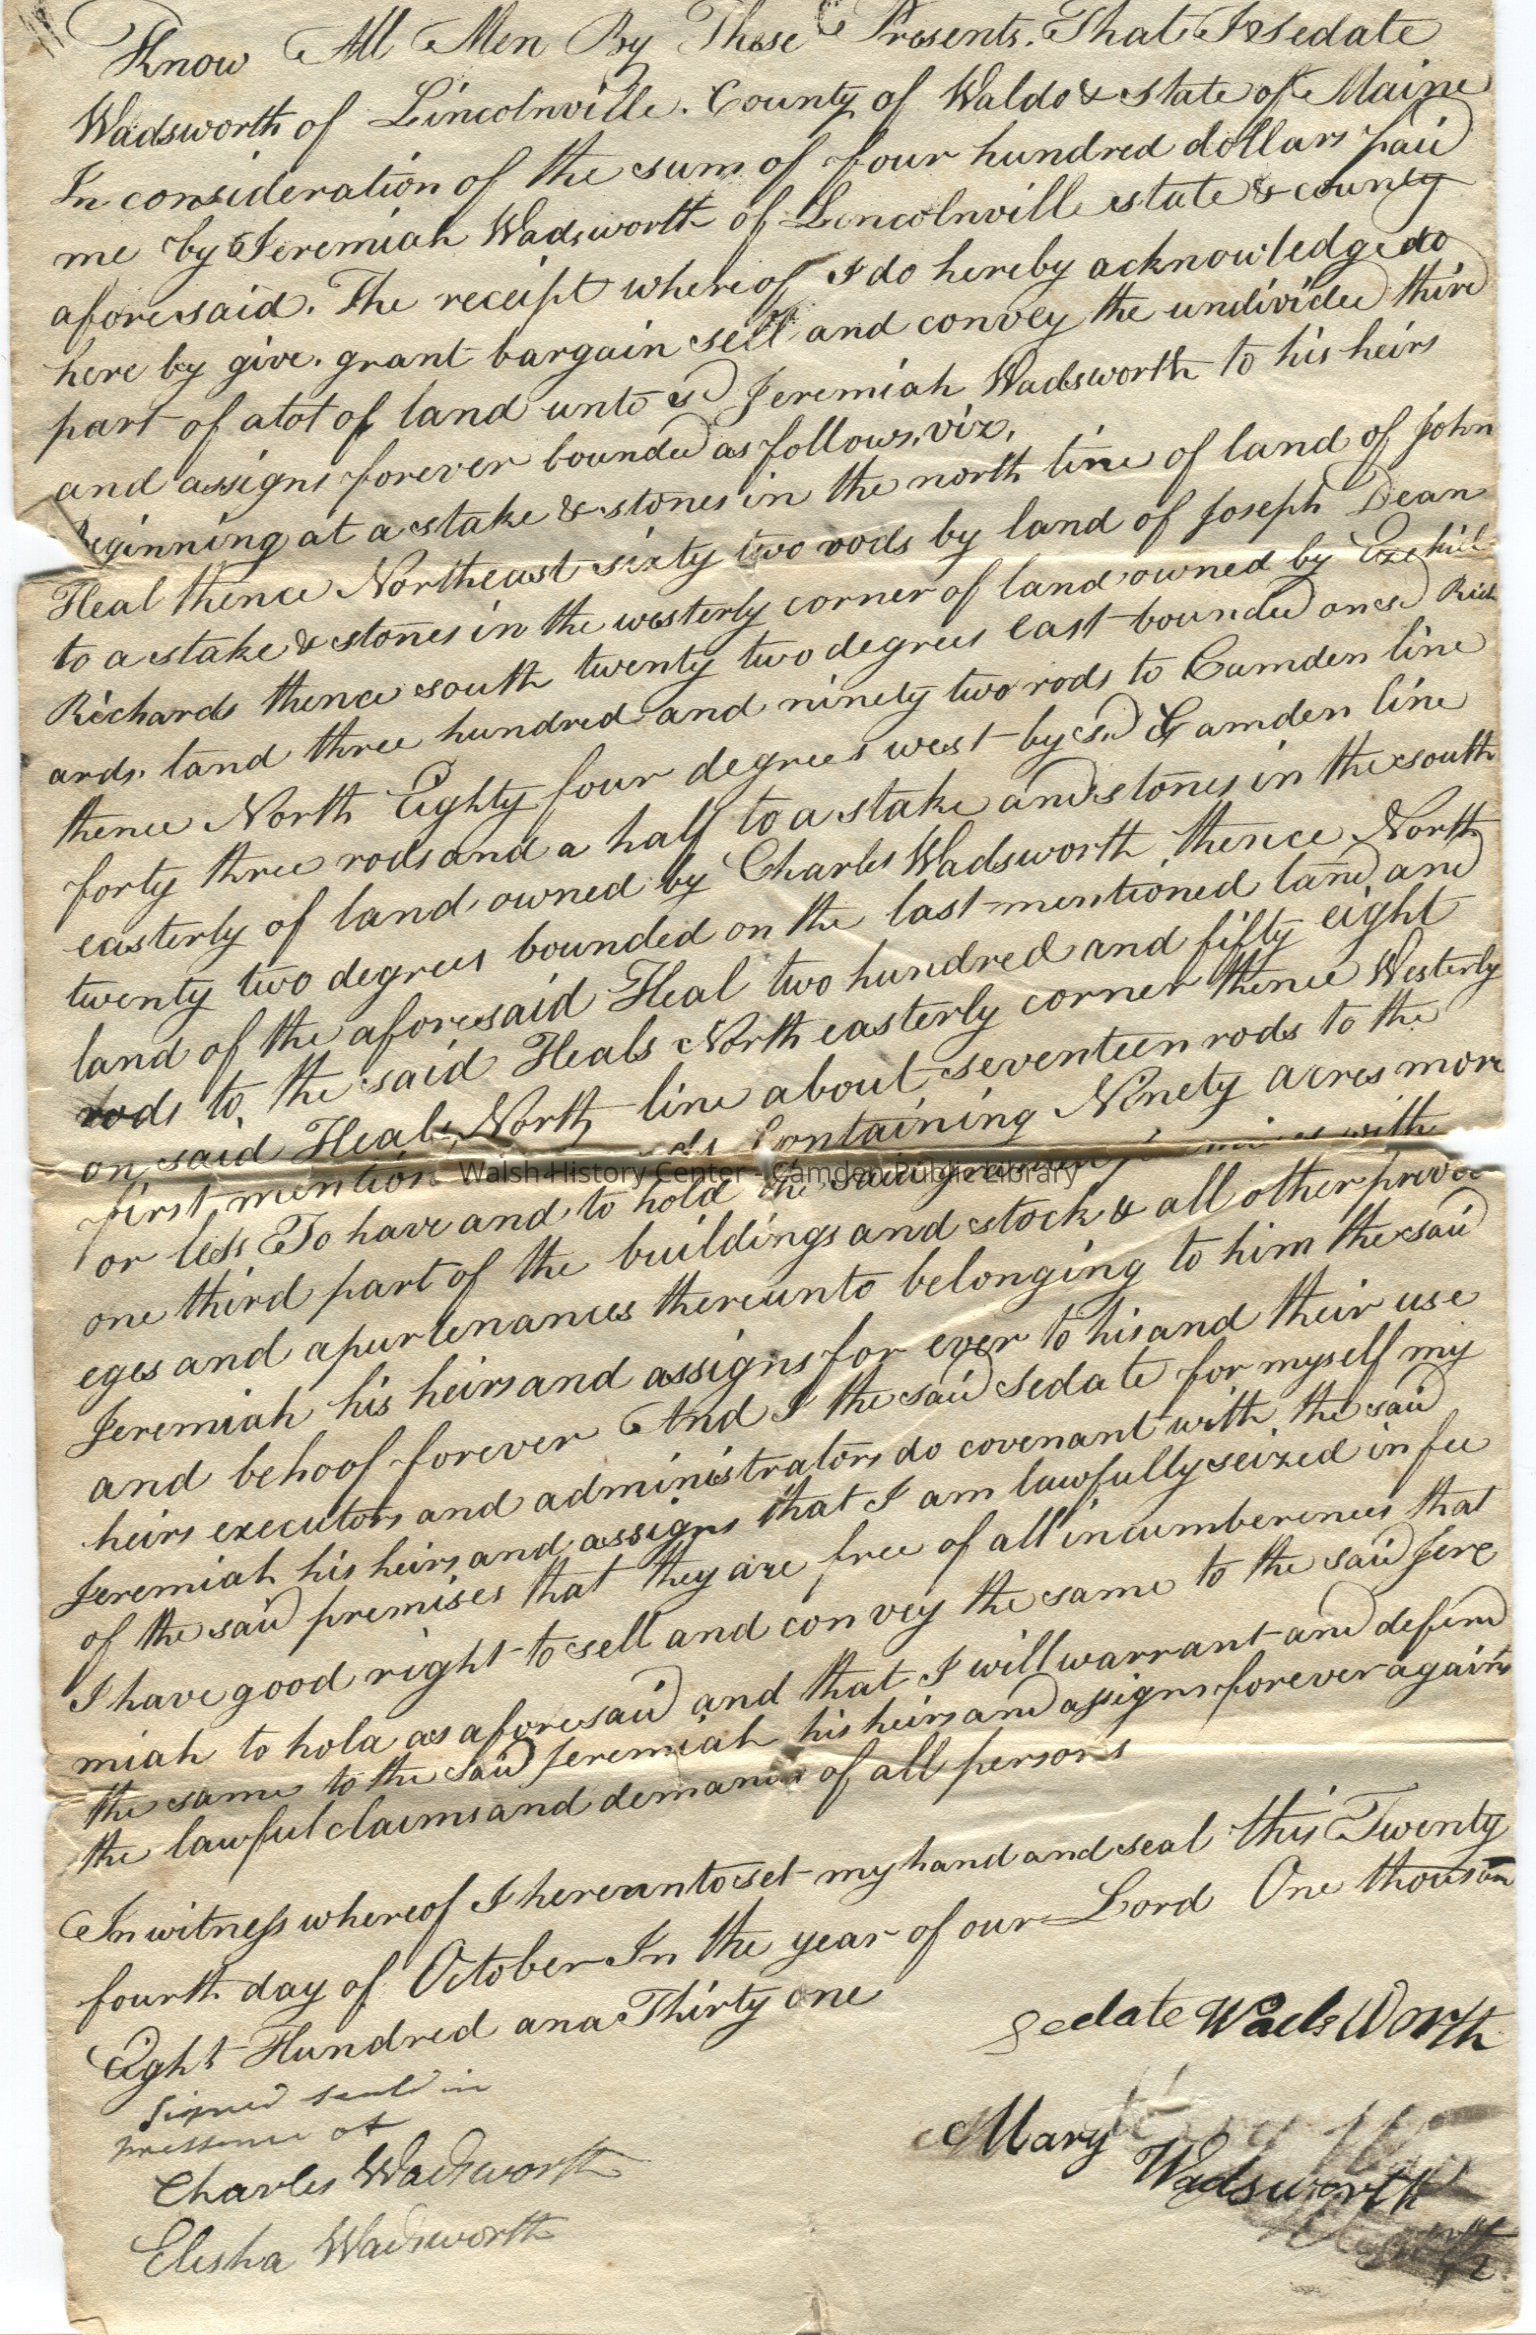 Know All Men By These Presents. That I Sedate
Wadsworth of Lincolnville. County of Waldo & State of Maine
In consideration of the sum of four hundred dollars paid
me by Jeremiah Wadsworth of Lincolnville state & county
aforesaid. The receipt whereof I do hereby acknowledge do
here by give. grant bargain sell and convey the undivided third
part of a lot of land unto sd Jeremiah Wadsworth to his heirs
and assigns forever bounded as follows, viz,
Beginning at a stake & stones in the north line of land of John
Heal thence Northeast sixty two rods by land of Joseph Dean
to a stake & stones in the westerly corner of land owned by Ezekiel
Richards thence south twenty two degrees east bounded on sd Rich
ards land three hundred and ninety two rods to Camden line
thence North Eighty four degrees west by sd Camden line
forty three rods and a half to a stake and stones in the south
easterly of land owned by Charles Wadsworth thence North
twenty two degrees bounded on the last mentioned land and
land of the aforesaid Heal two hundred and fifty eight
rods to the said Heals North easterly corner thence Westerly
on said Heals North line about seventeen rods to the
first mention Containing Ninety acres more
or less To have and to hold the said with
one third part of the buildings and stock & all other privel
eges and apurtenances thereunto belonging to him the said
Jeremiah his heirs and assigns for ever to his and their use
and behoof forever And I the said Sedate for myself my
heirs executors and administrators do covenant with the said
Jeremiah his heirs and assigns that I am lawfully seized in fee
of the said premises that they are free of all incumberences that
I have good right to sell and convey the same to the said Jere
miah to hold as aforesaid and that I will warrant and defend
the same to the said Jeremiah his heirs and assigns forever against
the lawful claims and demands of all persons
In witness whereof I hereunto set my hand and seal this Twenty
fourth day of October In the year of our Lord One thousan
Eight Hundred and Thirty one
Sedate Wadsworth
Signed seald in
pressence of
Mary
Wadsworth
Charles Wadsworth
Elisha Wadsworth
Walsh History Center - Camden Public Library